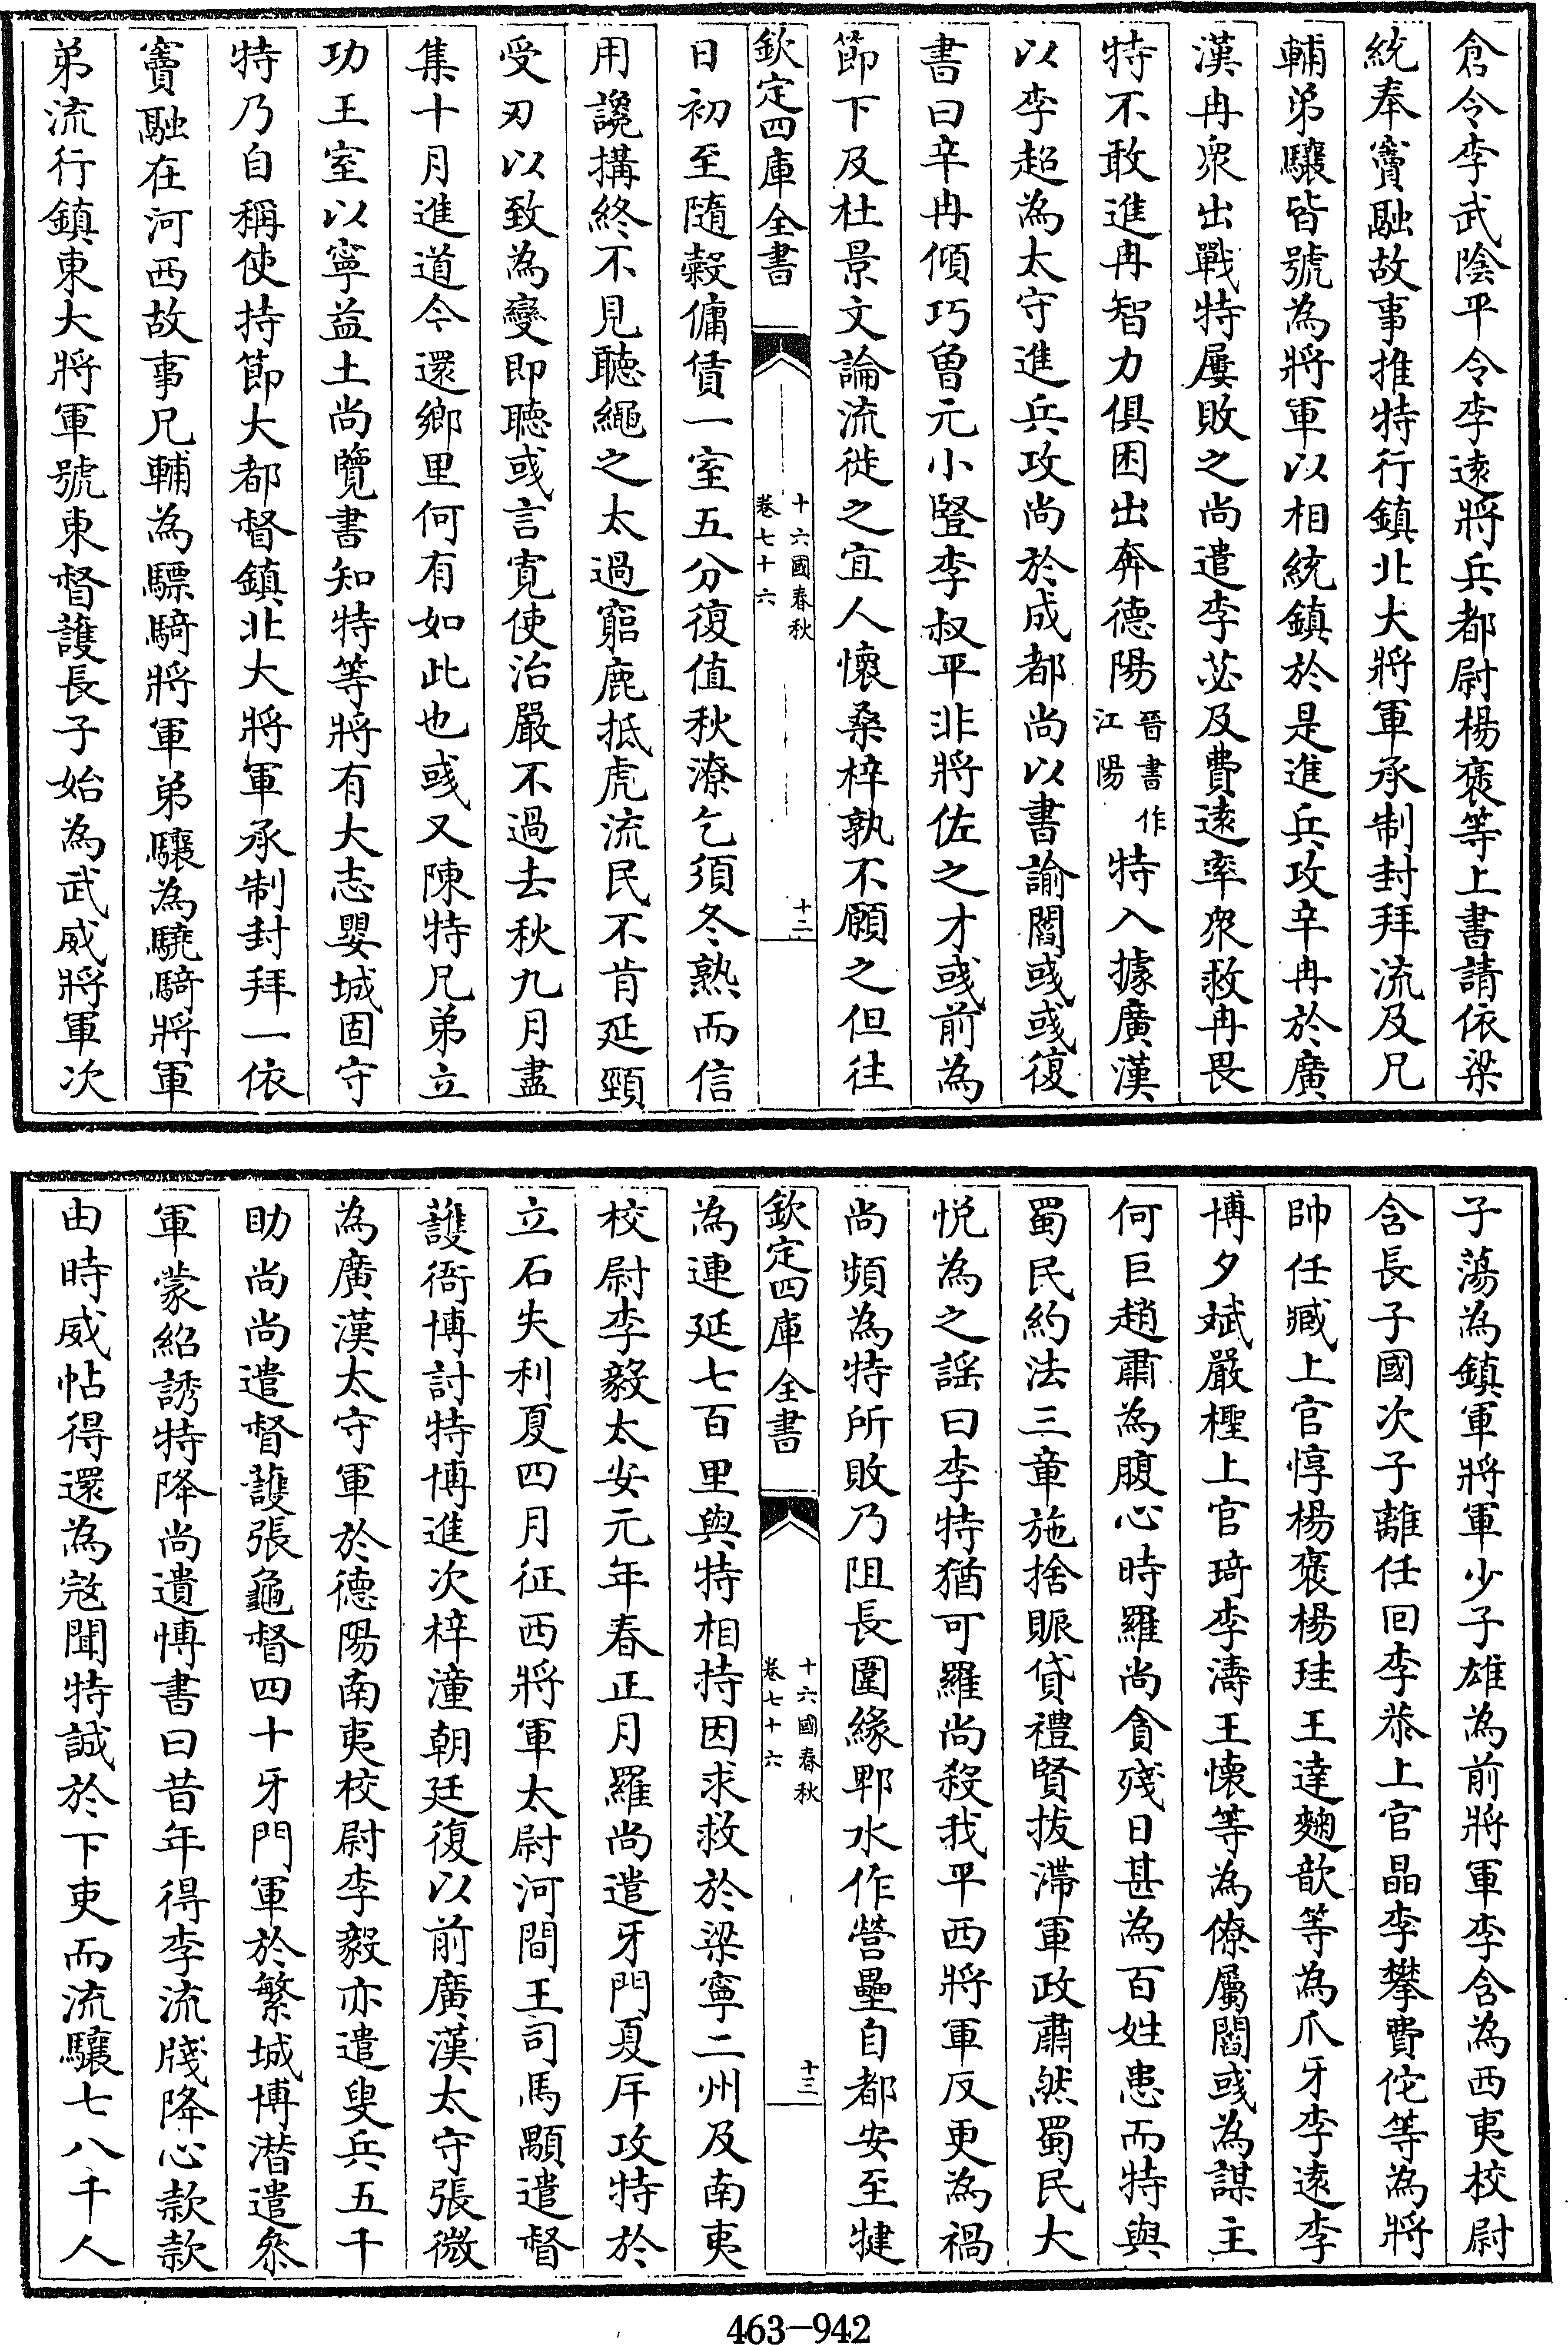 倉令李武陰平令李遠將兵都尉楊褒等上書請依梁
統奉竇融故事推特行鎮北大將軍承制封拜流及兄
輔弟驤皆號為將軍以相統鎮於是進兵攻辛冉於廣
漢冉衆出戰特屢敗之尚遣李苾及費遠率衆救冉畏
特不敢進冉智力俱困出奔德陽晉書作江陽特入據廣漢
以李超為太守進兵攻尚於成都尚以書諭閻彧彧復
書曰辛冉傾巧曾元小豎李叔平非將佐之才彧前為
節下及杜景文論流徙之宜人懷桑梓孰不願之但往
欽定四庫全書
十六國春秋
卷七十六
十二
日初至隨穀傭賃一室五分復值秋潦乞須冬熟而信
用讒搆終不見聽繩之太過窮鹿抵虎流民不肯延頸
受刃以致為變即聽彧言寛使治嚴不過去秋九月盡
集十月進道今還鄉里何有如此也彧又陳特兄弟立
功王室以寧益土尚覽書知特等將有大志嬰城固守
特乃自稱使持節大都督鎮北大將軍承制封拜一依
竇融在河西故事兄輔為驃騎將軍弟驤為驍騎將軍
弟流行鎮東大將軍號東督護長子始為武威將軍次
子蕩為鎮軍將軍少子雄為前將軍李含為西夷校尉
含長子國次子離任回李恭上官晶李攀費佗等為將
帥任臧上官惇楊褒楊珪王達麴歆等為爪牙李遠李
博夕斌嚴檉上官琦李濤王懷等為僚屬閻彧為謀主
何巨趙肅為腹心時羅尚貪殘日甚為百姓患而特與
蜀民約法三章施捨賑貸禮賢拔滯軍政肅然蜀民大
悅為之謡曰李特猶可羅尚殺我平西將軍反更為禍
尚頻為特所敗乃阻長圍緣郫水作營壘自都安至犍
欽定四庫全書
十六國春秋
卷七十六
十三
為連延七百里與特相持因求救於梁寧二州及南夷
校尉李毅太安元年春正月羅尚遣牙門夏庈攻特於
立石失利夏四月征西將軍太尉河間王司馬顒遣督
護衙博討特博進次梓潼朝廷復以前廣漢太守張微
為廣漢太守軍於德陽南夷校尉李毅亦遣叟兵五千
助尚尚遣督護張龜督四十牙門軍於繁城博潛遣叅
軍蒙紹誘特降尚遺博書曰昔年得李流牋降心款款
由時威帖得還為寇聞特誠於下吏而流驤七八千人
463-942